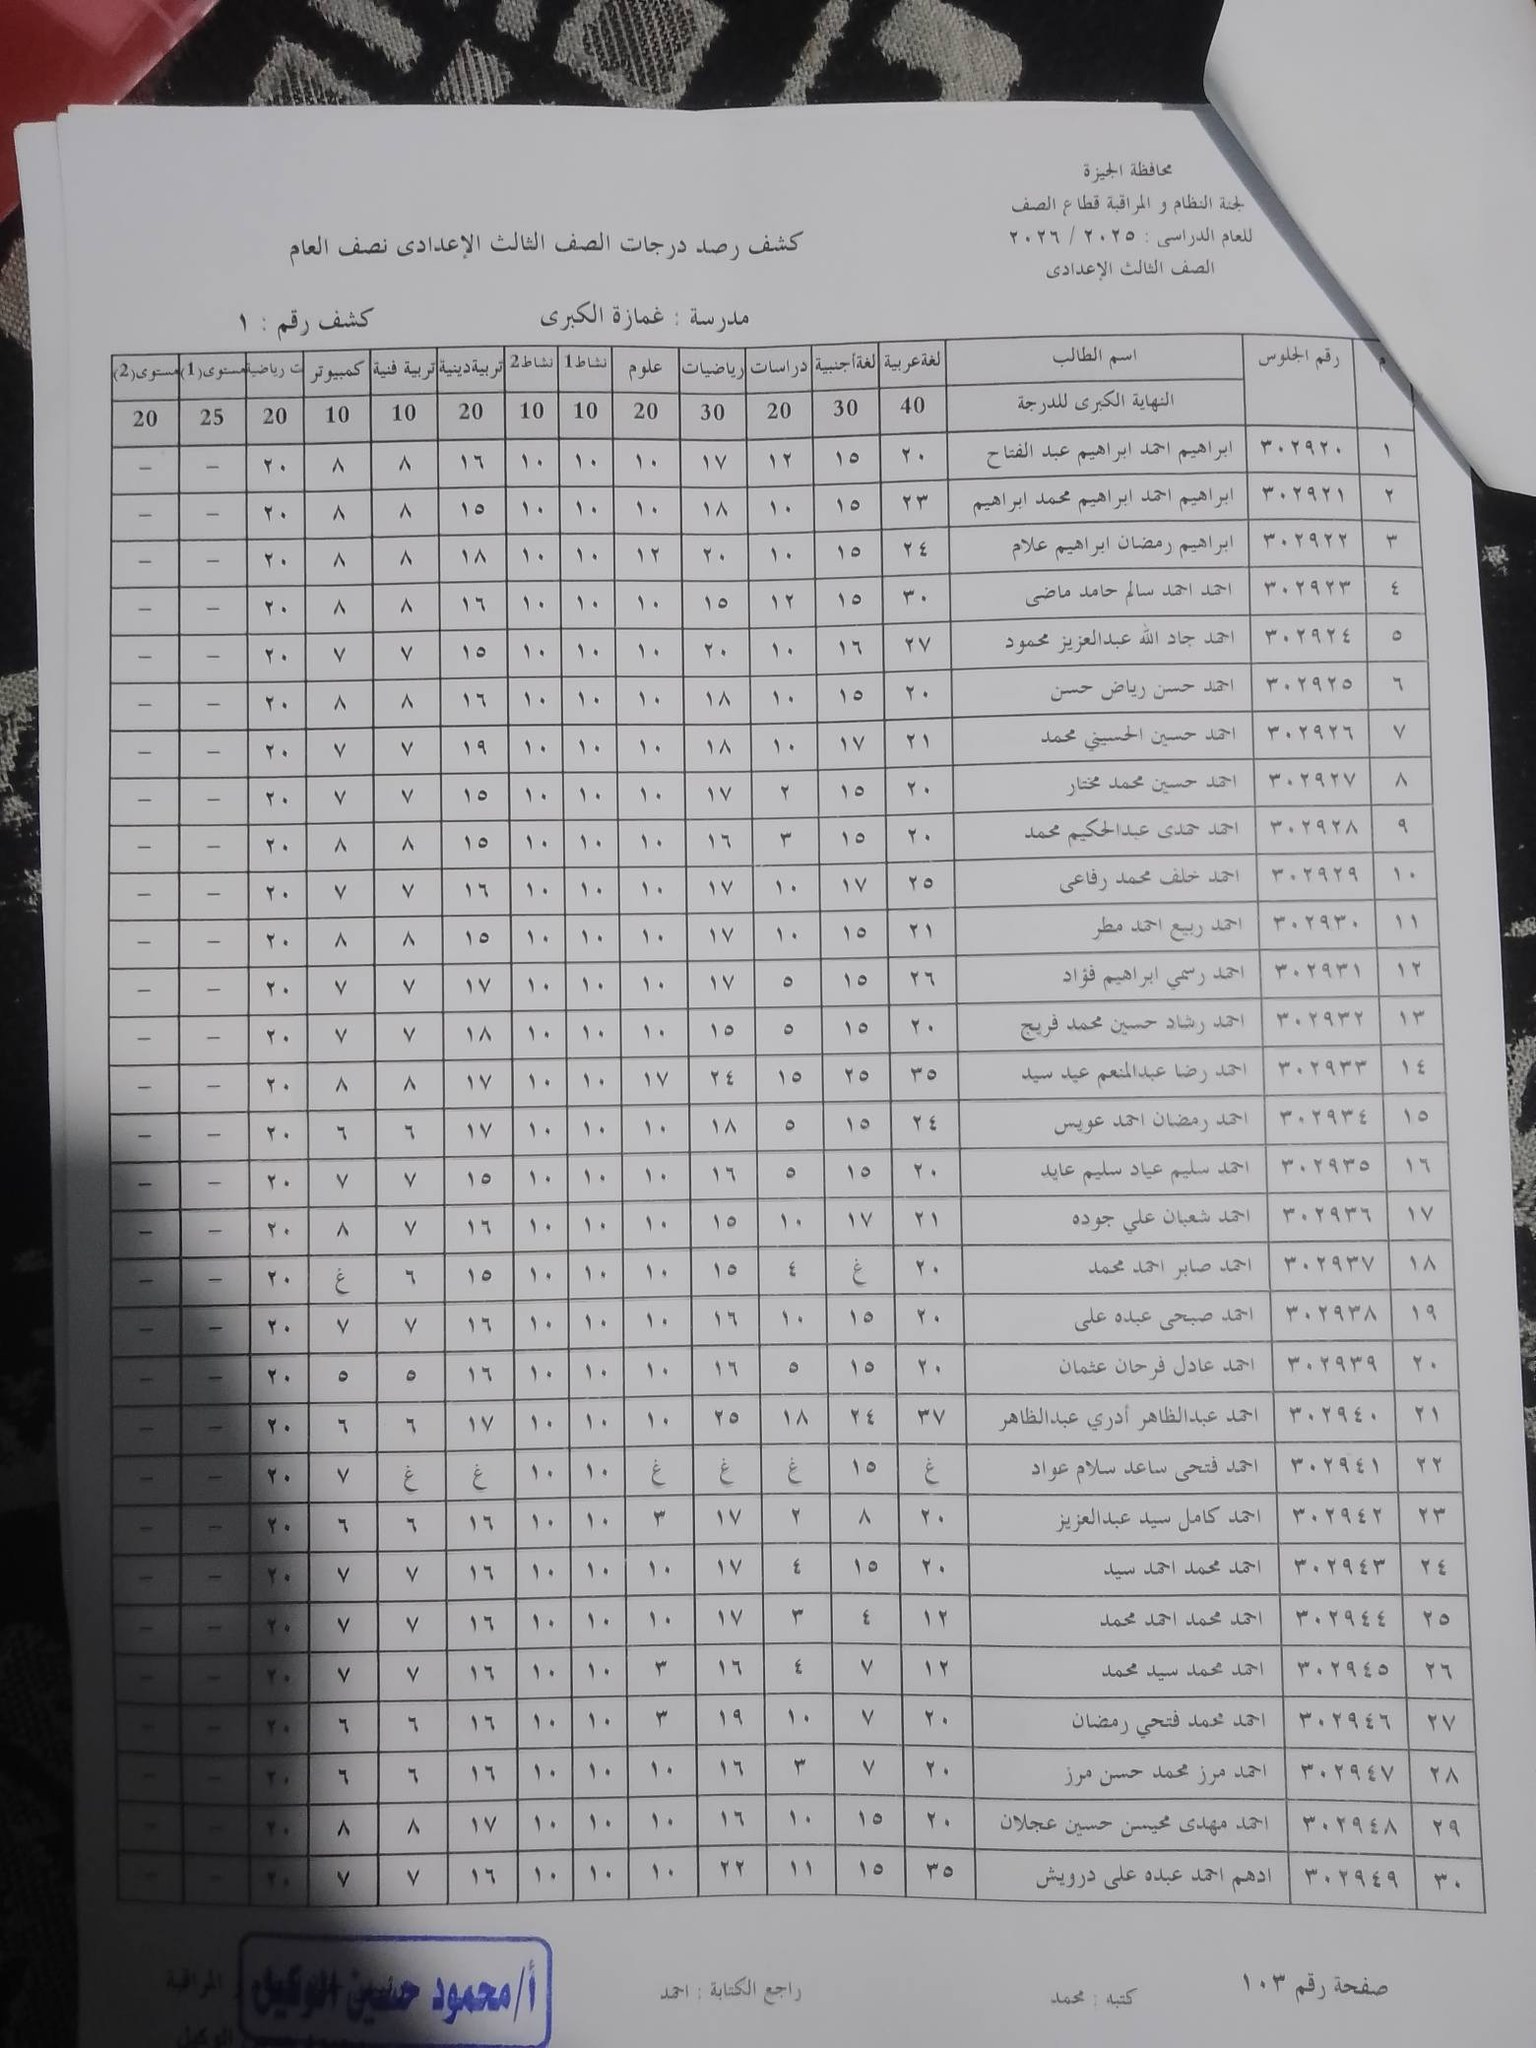 محافظة الجيزة
لجنة النظام و المراقبة قطاع الصف
للعام الدراسى : ٢٠٢٥ / ٢٠٢٦
الصف الثالث الإعدادى
كشف رصد درجات الصف الثالث الإعدادى نصف العام
مدرسة : غمازة الكبرى كشف رقم : ١
م رقم الجلوس اسم الطالب لغةعربية لغةأجنبية دراسات رياضيات علوم نشاط1 نشاط2 تربيةدينية تربية فنية كمبيوتر ت رياضية مستوى(1) مستوى(2)
النهاية الكبرى للدرجة 40 30 20 30 20 10 10 20 10 10 20 25 20
١ ٣٠٢٩٢٠ ابراهيم احمد ابراهيم عبد الفتاح ٢٠ ١٥ ١٢ ١٧ ١٠ ١٠ ١٠ ١٦ ٨ ٨ ٢٠ – –
٢ ٣٠٢٩٢١ ابراهيم احمد ابراهيم محمد ابراهيم ٢٣ ١٥ ١٠ ١٨ ١٠ ١٠ ١٠ ١٥ ٨ ٨ ٢٠ – –
٣ ٣٠٢٩٢٢ ابراهيم رمضان ابراهيم علام ٢٤ ١٥ ١٠ ٢٠ ١٢ ١٠ ١٠ ١٨ ٨ ٨ ٢٠ – –
٤ ٣٠٢٩٢٣ احمد احمد سالم حامد ماضى ٣٠ ١٥ ١٢ ١٥ ١٠ ١٠ ١٠ ١٦ ٨ ٨ ٢٠ – –
٥ ٣٠٢٩٢٤ احمد جاد الله عبدالعزيز محمود ٢٧ ١٦ ١٠ ٢٠ ١٠ ١٠ ١٠ ١٥ ٧ ٧ ٢٠ – –
٦ ٣٠٢٩٢٥ احمد حسن رياض حسن ٢٠ ١٥ ١٠ ١٨ ١٠ ١٠ ١٠ ١٦ ٨ ٨ ٢٠ – –
٧ ٣٠٢٩٢٦ احمد حسين الحسيني محمد ٢١ ١٧ ١٠ ١٨ ١٠ ١٠ ١٠ ١٩ ٧ ٧ ٢٠ – –
٨ ٣٠٢٩٢٧ احمد حسين محمد مختار ٢٠ ١٥ ٢ ١٧ ١٠ ١٠ ١٠ ١٥ ٧ ٧ ٢٠ – –
٩ ٣٠٢٩٢٨ احمد حمدى عبدالحكيم محمد ٢٠ ١٥ ٣ ١٦ ١٠ ١٠ ١٠ ١٥ ٨ ٨ ٢٠ – –
١٠ ٣٠٢٩٢٩ احمد خلف محمد رفاعى ٢٥ ١٧ ١٠ ١٧ ١٠ ١٠ ١٠ ١٦ ٧ ٧ ٢٠ – –
١١ ٣٠٢٩٣٠ احمد ربيع احمد مطر ٢١ ١٥ ١٠ ١٧ ١٠ ١٠ ١٠ ١٥ ٨ ٨ ٢٠ – –
١٢ ٣٠٢٩٣١ احمد رسمي ابراهيم فؤاد ٢٦ ١٥ ٥ ١٧ ١٠ ١٠ ١٠ ١٧ ٧ ٧ ٢٠ – –
١٣ ٣٠٢٩٣٢ احمد رشاد حسين محمد فريج ٢٠ ١٥ ٥ ١٥ ١٠ ١٠ ١٠ ١٨ ٧ ٧ ٢٠ – –
١٤ ٣٠٢٩٣٣ احمد رضا عبدالمنعم عيد سيد ٣٥ ٢٥ ١٥ ٢٤ ١٧ ١٠ ١٠ ١٧ ٨ ٨ ٢٠ – –
١٥ ٣٠٢٩٣٤ احمد رمضان احمد عويس ٢٤ ١٥ ٥ ١٨ ١٠ ١٠ ١٠ ١٧ ٦ ٦ ٢٠ – –
١٦ ٣٠٢٩٣٥ احمد سليم عياد سليم عايد ٢٠ ١٥ ٥ ١٦ ١٠ ١٠ ١٠ ١٥ ٧ ٧ ٢٠ – –
١٧ ٣٠٢٩٣٦ احمد شعبان علي جوده ٢١ ١٧ ١٠ ١٥ ١٠ ١٠ ١٠ ١٦ ٧ ٨ ٢٠ – –
١٨ ٣٠٢٩٣٧ احمد صابر احمد محمد ٢٠ غ ٤ ١٥ ١٠ ١٠ ١٠ ١٥ ٦ غ ٢٠ – –
١٩ ٣٠٢٩٣٨ احمد صبحى عبده على ٢٠ ١٥ ١٠ ١٦ ١٠ ١٠ ١٠ ١٦ ٧ ٧ ٢٠ – –
٢٠ ٣٠٢٩٣٩ احمد عادل فرحان عثمان ٢٠ ١٥ ٥ ١٦ ١٠ ١٠ ١٠ ١٦ ٥ ٥ ٢٠ – –
٢١ ٣٠٢٩٤٠ احمد عبدالظاهر أدري عبدالظاهر ٣٧ ٢٤ ١٨ ٢٥ ١٠ ١٠ ١٠ ١٧ ٦ ٦ ٢٠ – –
٢٢ ٣٠٢٩٤١ احمد فتحى ساعد سلام عواد غ ١٥ غ غ غ ١٠ ١٠ غ غ ٧ ٢٠ – –
٢٣ ٣٠٢٩٤٢ احمد كامل سيد عبدالعزيز ٢٠ ٨ ٢ ١٧ ٣ ١٠ ١٠ ١٦ ٦ ٦ ٢٠ – –
٢٤ ٣٠٢٩٤٣ احمد محمد احمد سيد ٢٠ ١٥ ٤ ١٧ ١٠ ١٠ ١٠ ١٦ ٧ ٧ ٢٠ – –
٢٥ ٣٠٢٩٤٤ احمد محمد احمد محمد ١٢ ٤ ٣ ١٧ ١٠ ١٠ ١٠ ١٦ ٧ ٧ ٢٠ – –
٢٦ ٣٠٢٩٤٥ احمد محمد سيد محمد ١٢ ٧ ٤ ١٦ ٣ ١٠ ١٠ ١٦ ٧ ٧ ٢٠ – –
٢٧ ٣٠٢٩٤٦ احمد محمد فتحي رمضان ٢٠ ٧ ١٠ ١٩ ٣ ١٠ ١٠ ١٦ ٦ ٦ ٢٠ – –
٢٨ ٣٠٢٩٤٧ احمد مرز محمد حسن مرز ٢٠ ٧ ٣ ١٦ ١٠ ١٠ ١٠ ١٦ ٦ ٦ ٢٠ – –
٢٩ ٣٠٢٩٤٨ احمد مهدى محيسن حسين عجلان ٢٠ ١٥ ١٠ ١٦ ١٠ ١٠ ١٠ ١٧ ٨ ٨ ٢٠ – –
٣٠ ٣٠٢٩٤٩ ادهم احمد عبده على درويش ٣٥ ١٥ ١١ ٢٢ ١٠ ١٠ ١٠ ١٦ ٧ ٧ ٢٠ – –
صفحة رقم ١٠٣ كتبه : محمد راجع الكتابة : احمد المراقبة
أ/محمود حسين الوكيل
الوكيل